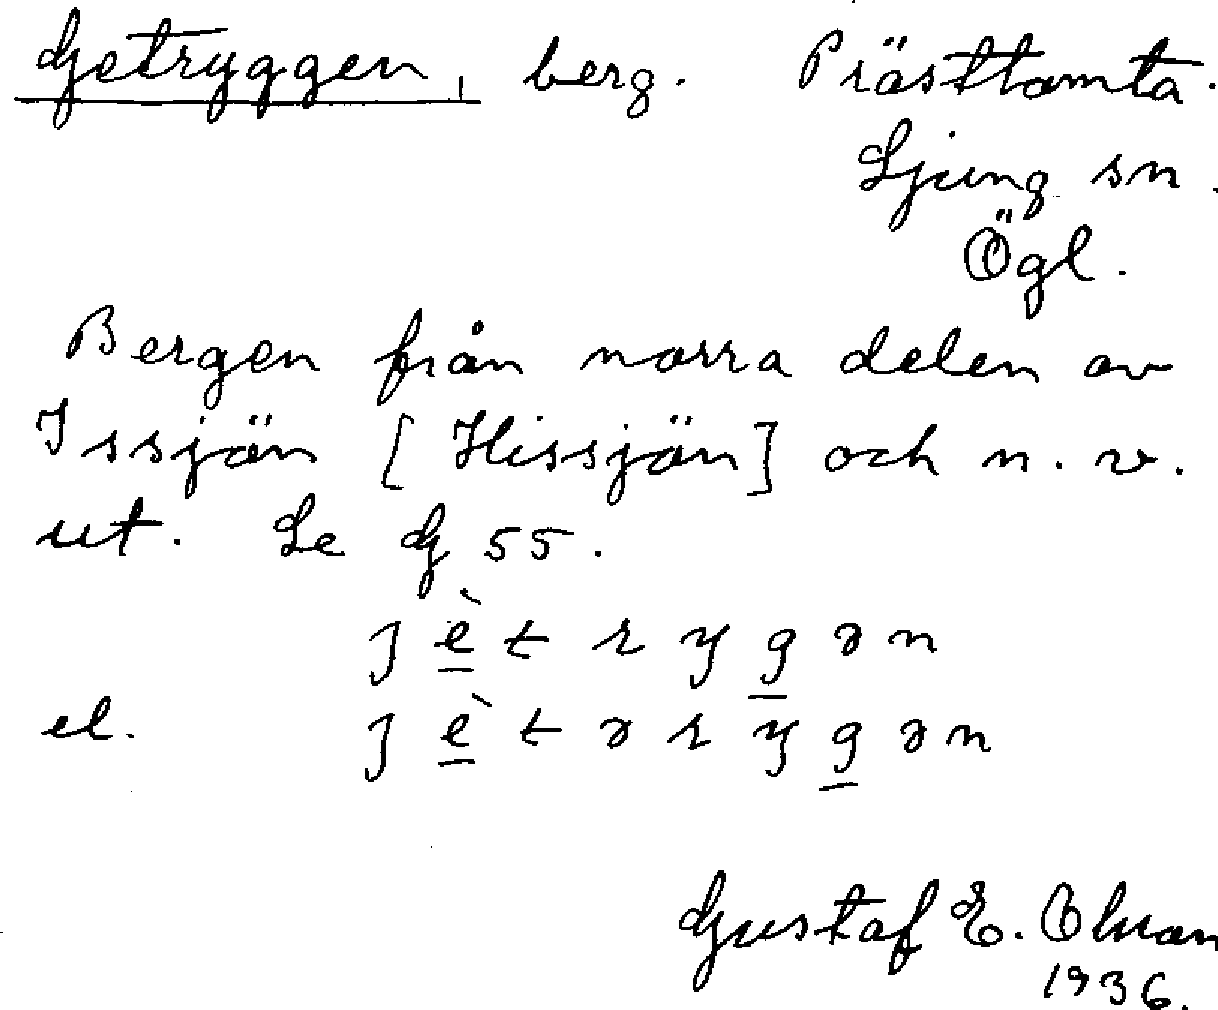 Getryggen, berg. Prästtomta.
Ljung sn.
Ögl.
Bergen från norra delen av
Issjön [Hissjön] och n. v.
ut. Se G 55.
j è̲ t r y g̲ ə n
el. j è̲ t ə r y g̲ ə n
Gustaf E. Olsson
1936.